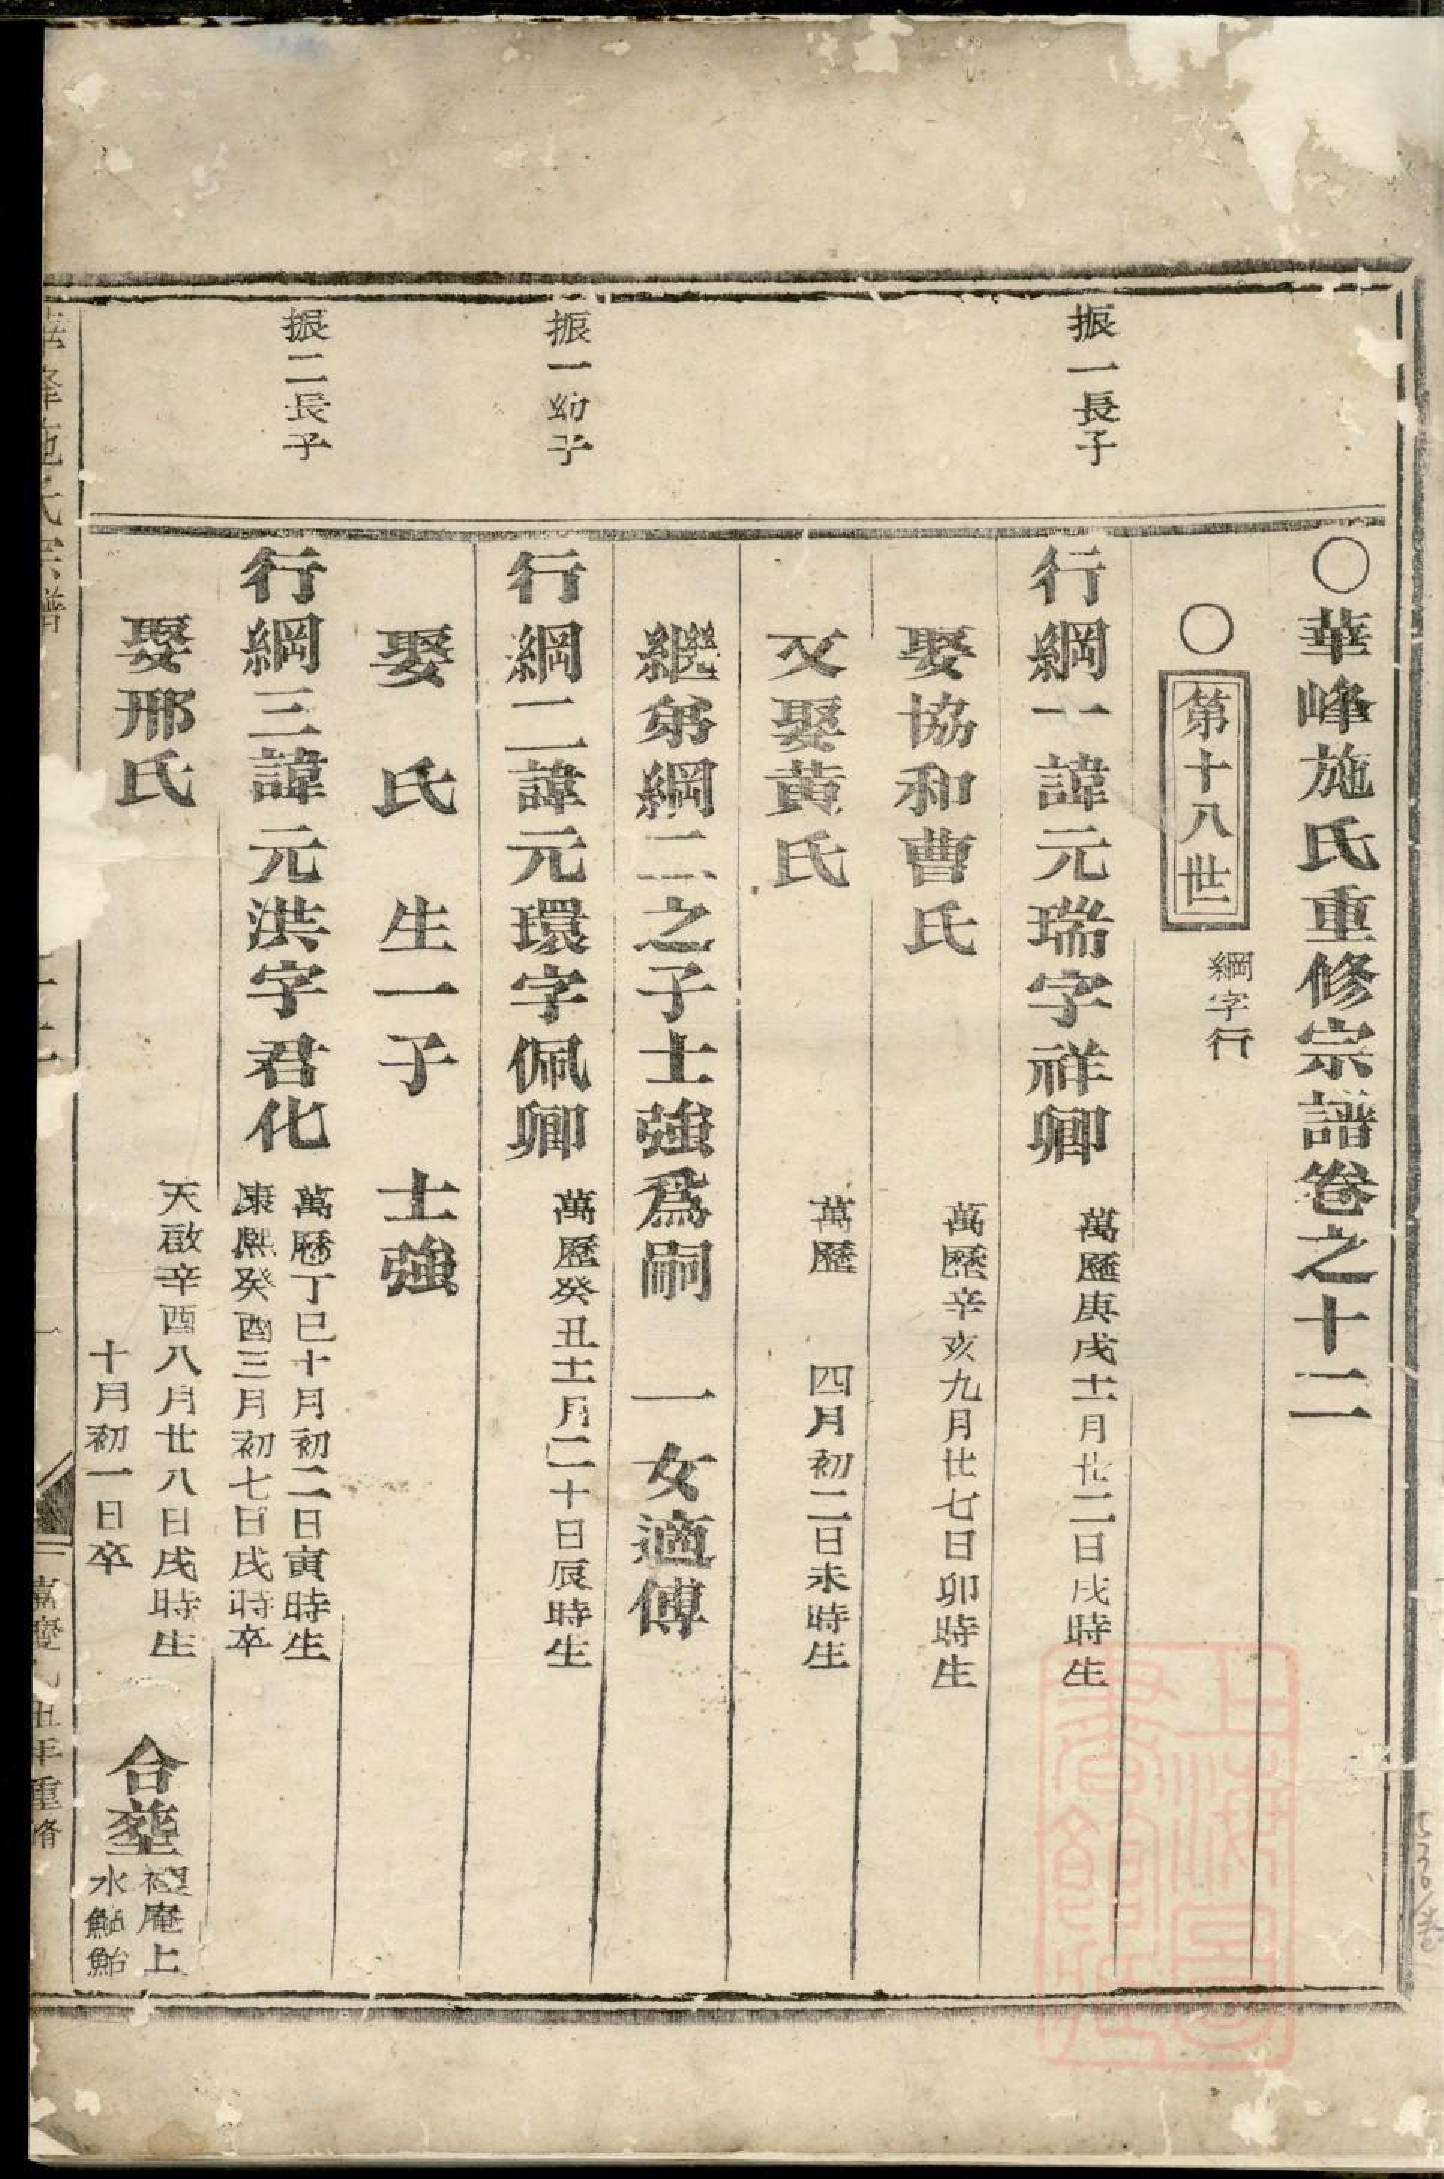 ○華峰施氏重修宗譜卷之十二
○第十八世 綱字行
振一長子
行綱一諱元瑞字祥卿 萬歷庚戌十一月廿二日戌時生
娶協和曹氏 萬歷辛亥九月廿七日卯時生
又娶黄氏 萬歷 四月初二日未時生
繼弟綱二之子士強爲嗣 一女適傅
振一幼子
行綱二諱元環字佩卿 萬歷癸丑十一月二十日辰時生
娶 氏 生一子 士強
振二長子
行綱三諱元洪字君化 萬歷丁巳十月初二日寅時生
康熙癸酉三月初七日戌時卒
娶邢氏 天啟辛酉八月廿八日戌時生
十月初一日卒
合塟 庵上
水鮎鮐
華峰施氏宗譜
一
嘉慶 丑年重脩
上海圖書館藏